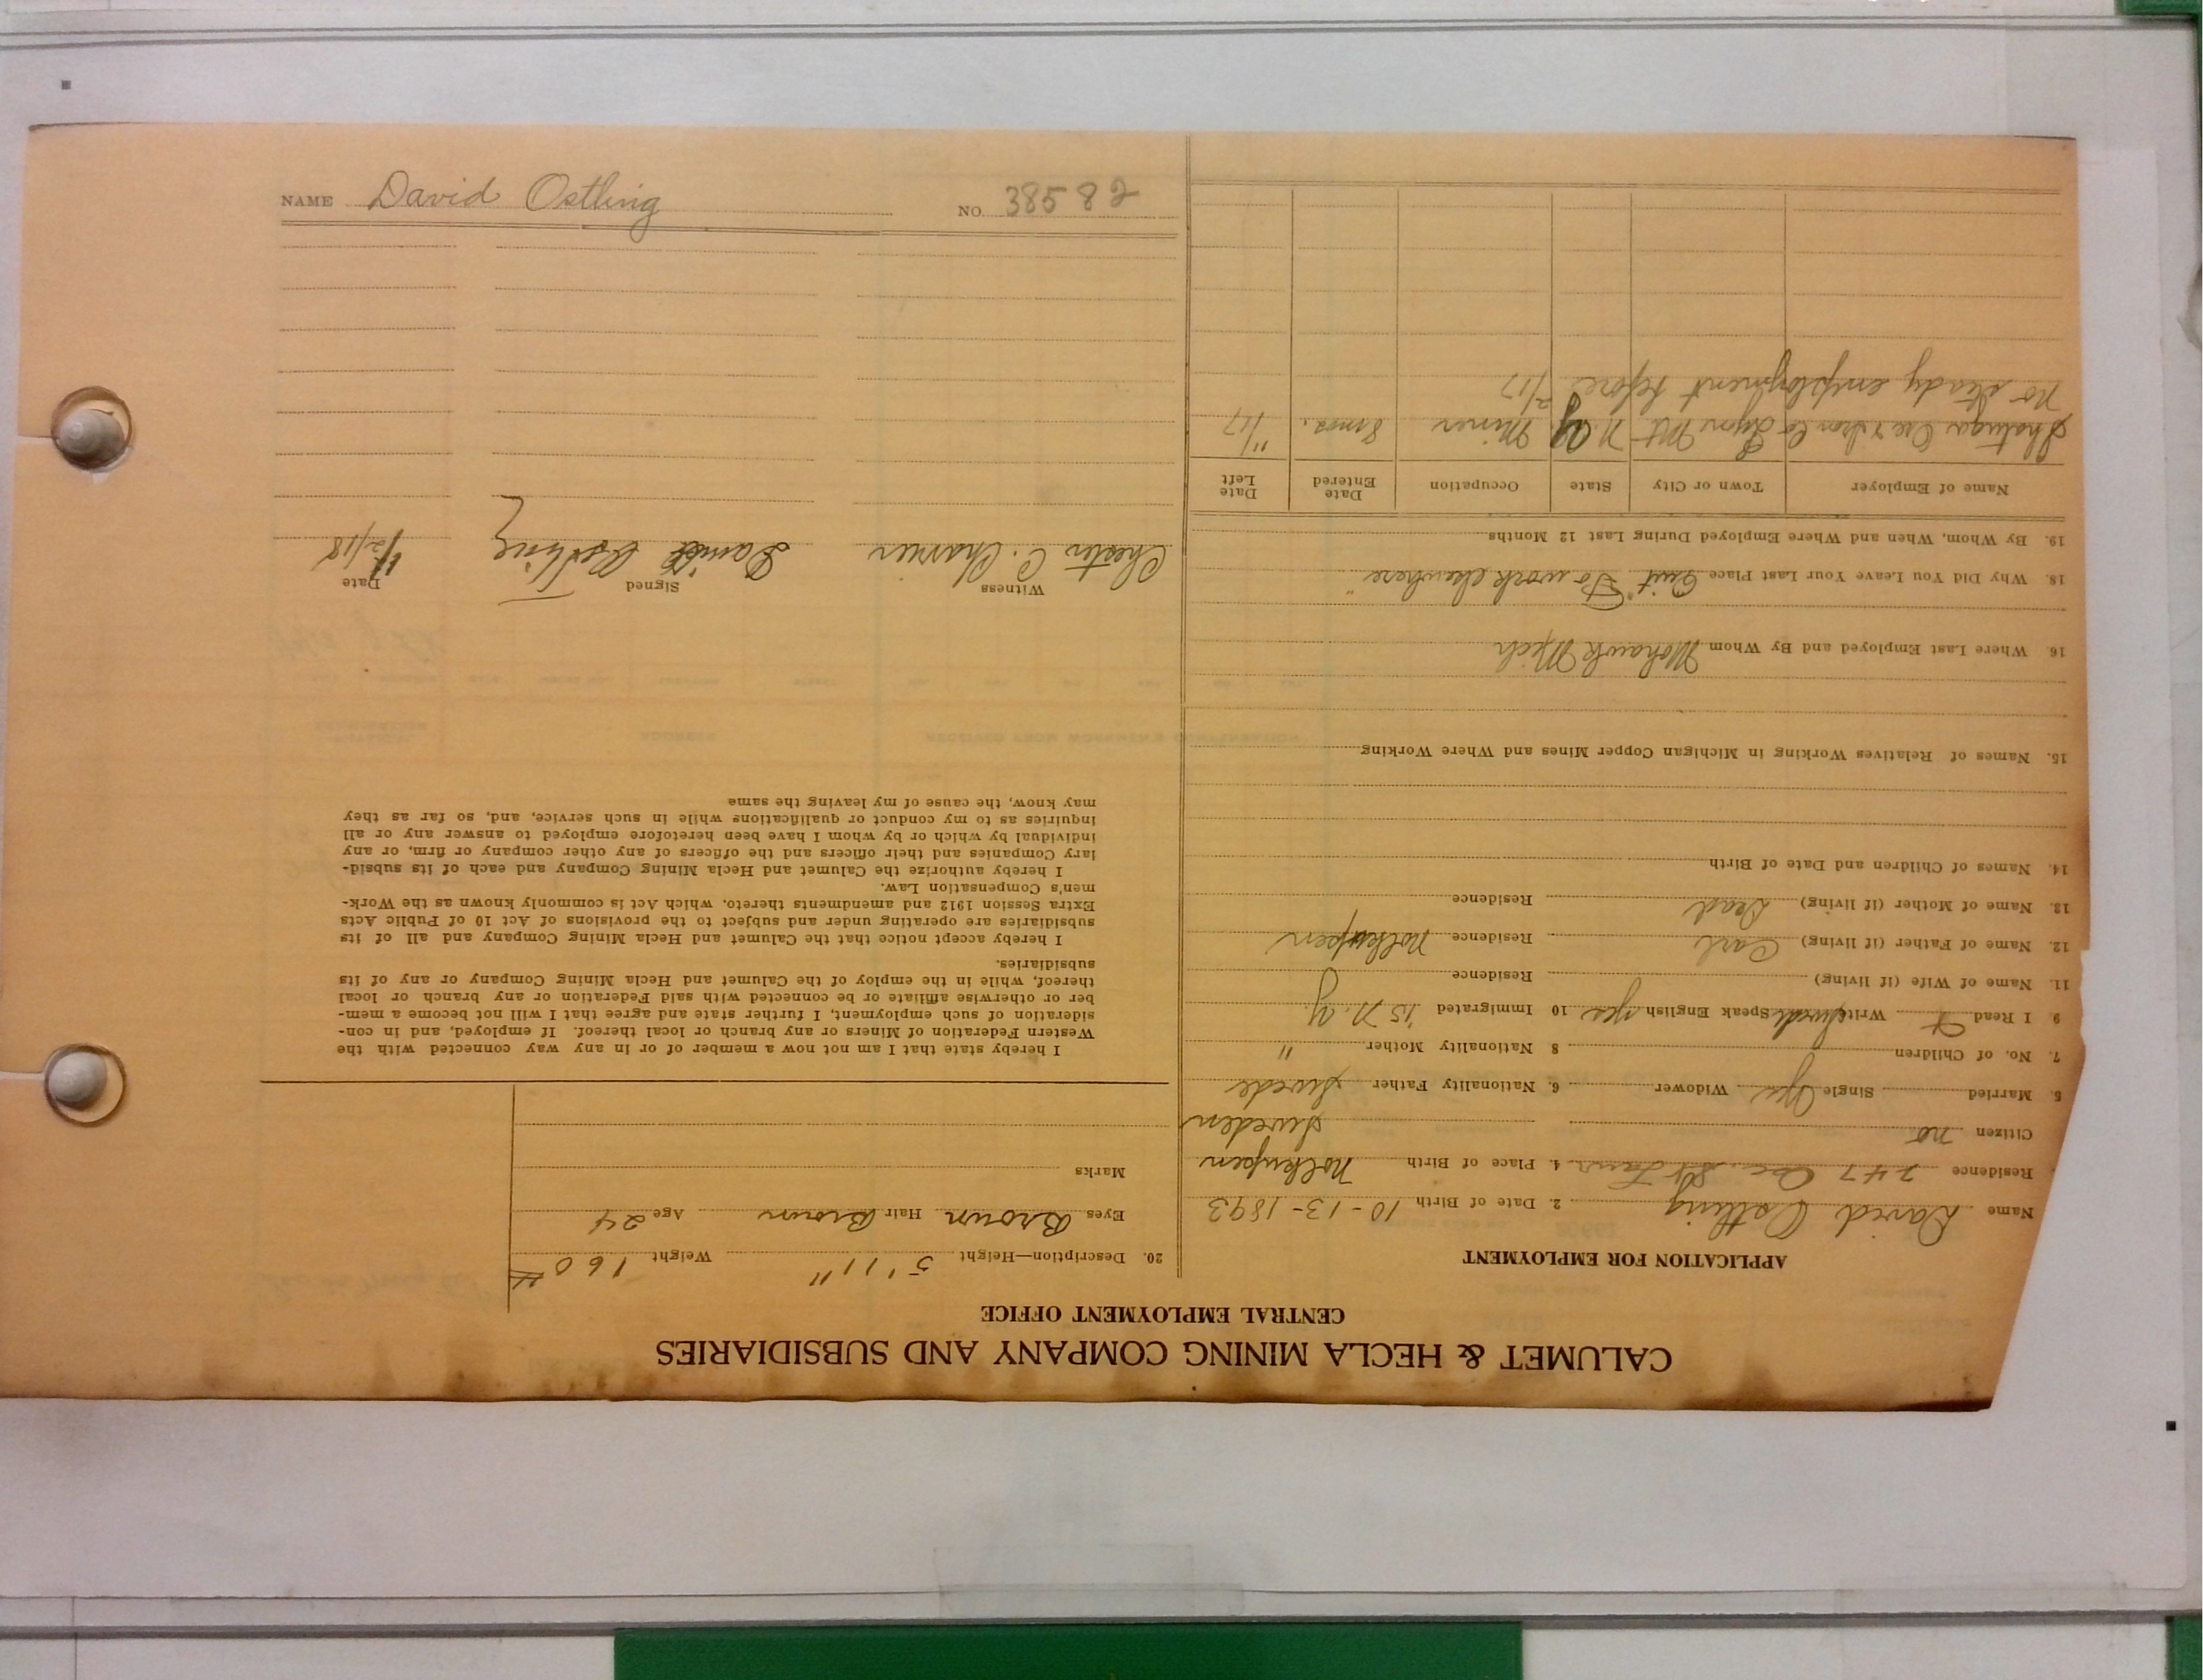 NAME David Ostling NO. 38582
CALUMET & HECLA MINING COMPANY AND SUBSIDIARIES
CENTRAL EMPLOYMENT OFFICE
APPLICATION FOR EMPLOYMENT
Name David Ostling 2. Date of Birth 10-13-1893
Residence 247 4. Place of Birth
Citizen no Sweden
5. Married Single Yes Widower 6. Nationality Father Swede
7. No. of Children 8 Nationality Mother "
9 I Read Write Speak English yes 10 Immigrated '15 N.Y.
11. Name of Wife (if living) Residence
12. Name of Father (if living) Carl Residence
13. Name of Mother (if living) Dead Residence
14. Names of Children and Date of Birth
15. Names of Relatives Working in Michigan Copper Mines and Where Working
16. Where Last Employed and By Whom Mohawk Mich
18. Why Did You Leave Your Last Place Quit "To work elsewhere"
19. By Whom, When and Where Employed During Last 12 Months
Name of Employer Town or City State Occupation Date Entered Date Left
Ore & Iron Co Lyon Mt N.Y. Miner 8 mos. 11/17
no steady employment before 2/17
20. Description—Height 5'11" Weight 160#
Eyes Brown Hair Brown Age 24
Marks
I hereby state that I am not now a member of or in any way connected with the
Western Federation of Miners or any branch or local thereof. If employed, and in con-
sideration of such employment, I further state and agree that I will not become a mem-
ber or otherwise affiliate or be connected with said Federation or any branch or local
thereof, while in the employ of the Calumet and Hecla Mining Company or any of its
subsidiaries.
I hereby accept notice that the Calumet and Hecla Mining Company and all of its
subsidiaries are operating under and subject to the provisions of Act 10 of Public Acts
Extra Session 1912 and amendments thereto, which Act is commonly known as the Work-
men's Compensation Law.
I hereby authorize the Calumet and Hecla Mining Company and each of its subsid-
iary Companies and their officers and the officers of any other company or firm, or any
individual by which or by whom I have been heretofore employed to answer any or all
inquiries as to my conduct or qualifications while in such service, and, so far as they
may know, the cause of my leaving the same
Witness Signed Date
Chester C. David Ostling 1/2/18